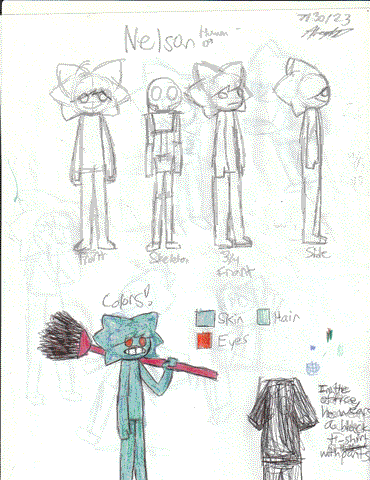 Nelson
7/30/23
Front
Skeleton
3/4
Front
Side
Colors!
Skin
Hair
Eyes
In the
office,
he wears
a black
t-shirt
with pants